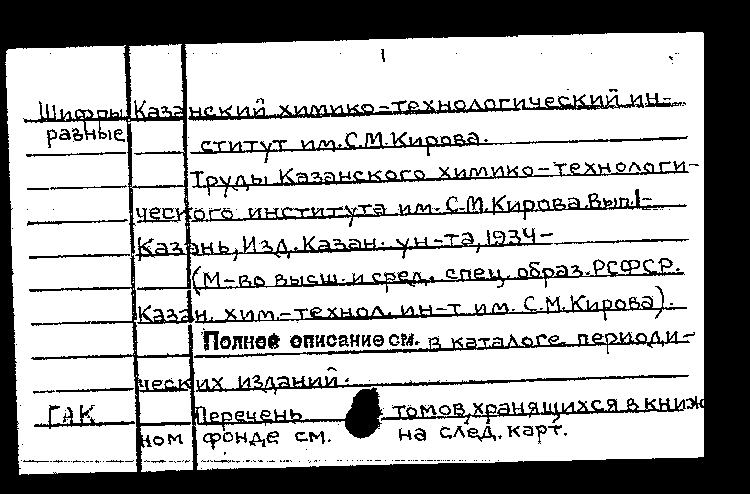 1
Шифры Казанский химико-технологический ин-
разные ститут им. С.М.Кирова.
Труды Казанского химико-технологи-
ческого института им. С.М.Кирова. Вып.1-
Казань, Изд. Казан. ун-та, 1934-
(М-во высш. и сред. спец. образ. РСФСР.
Казан. хим.-технол. ин-т им. С.М.Кирова).
Полное описание см. в каталоге периоди-
ческих изданий.
ГАК Перечень томов, хранящихся в книж
ном фонде см. на след. карт.